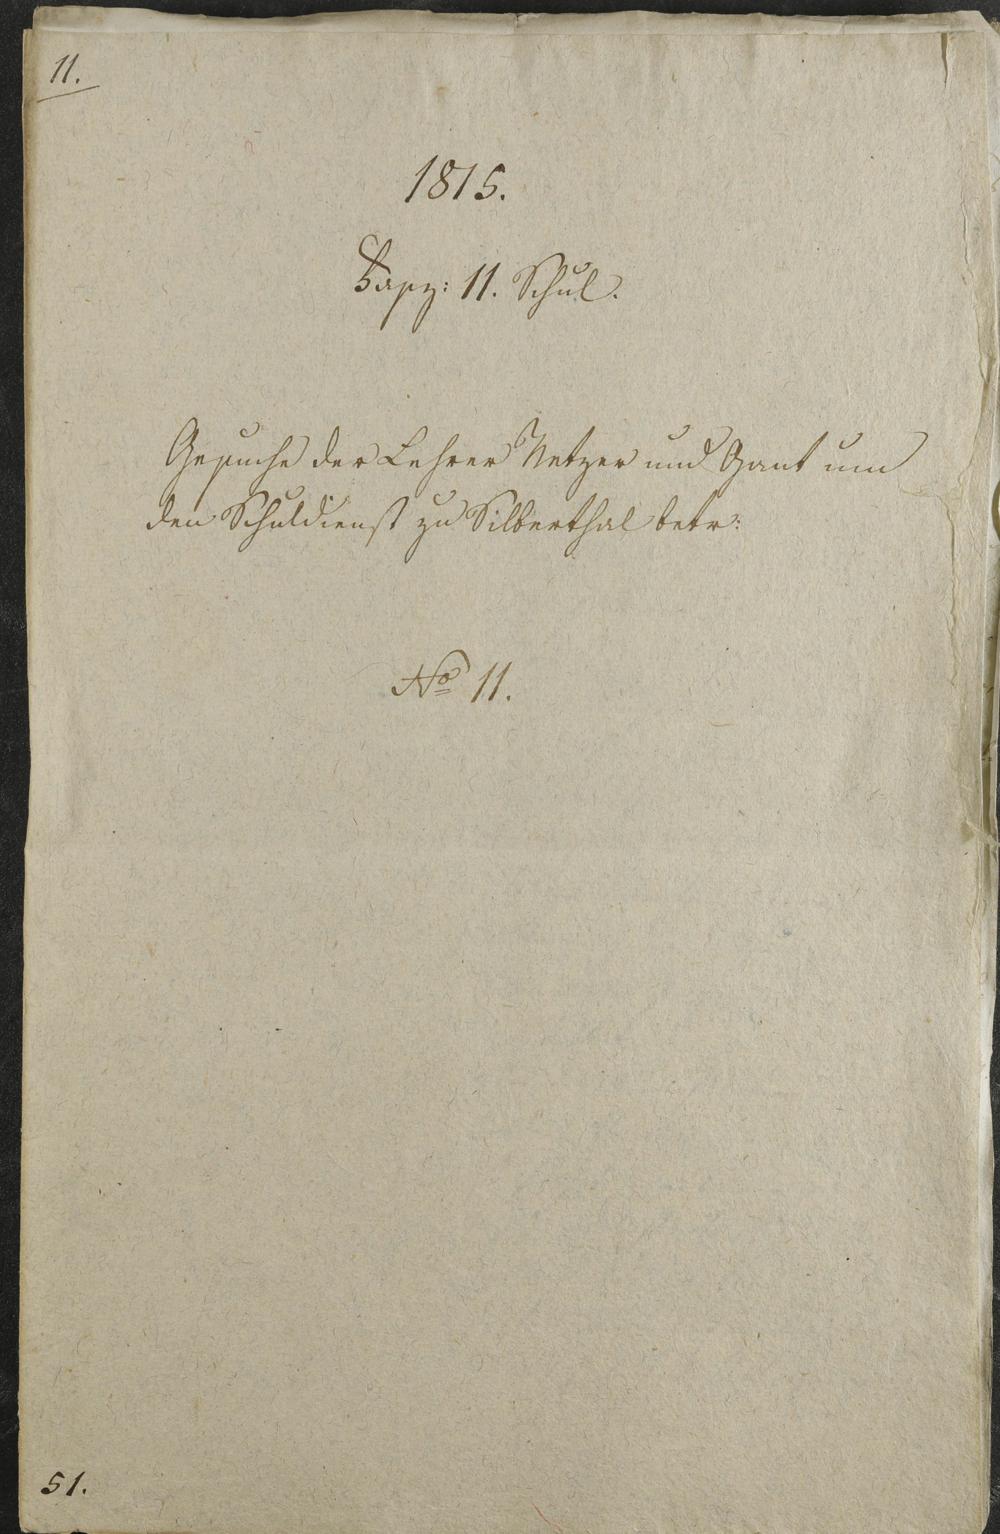 11.
1815.
Fasz: 11. Schul.
Gesuche der Lehrer Netzer und Gant um
den Schuldienst zu Silberthal betr:
No 11.
51.